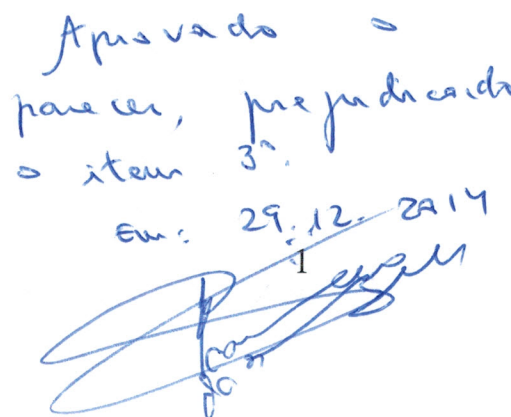 Aprovado o
parecer, prejudicado
o item 3º.
Em: 29.12.2014
1